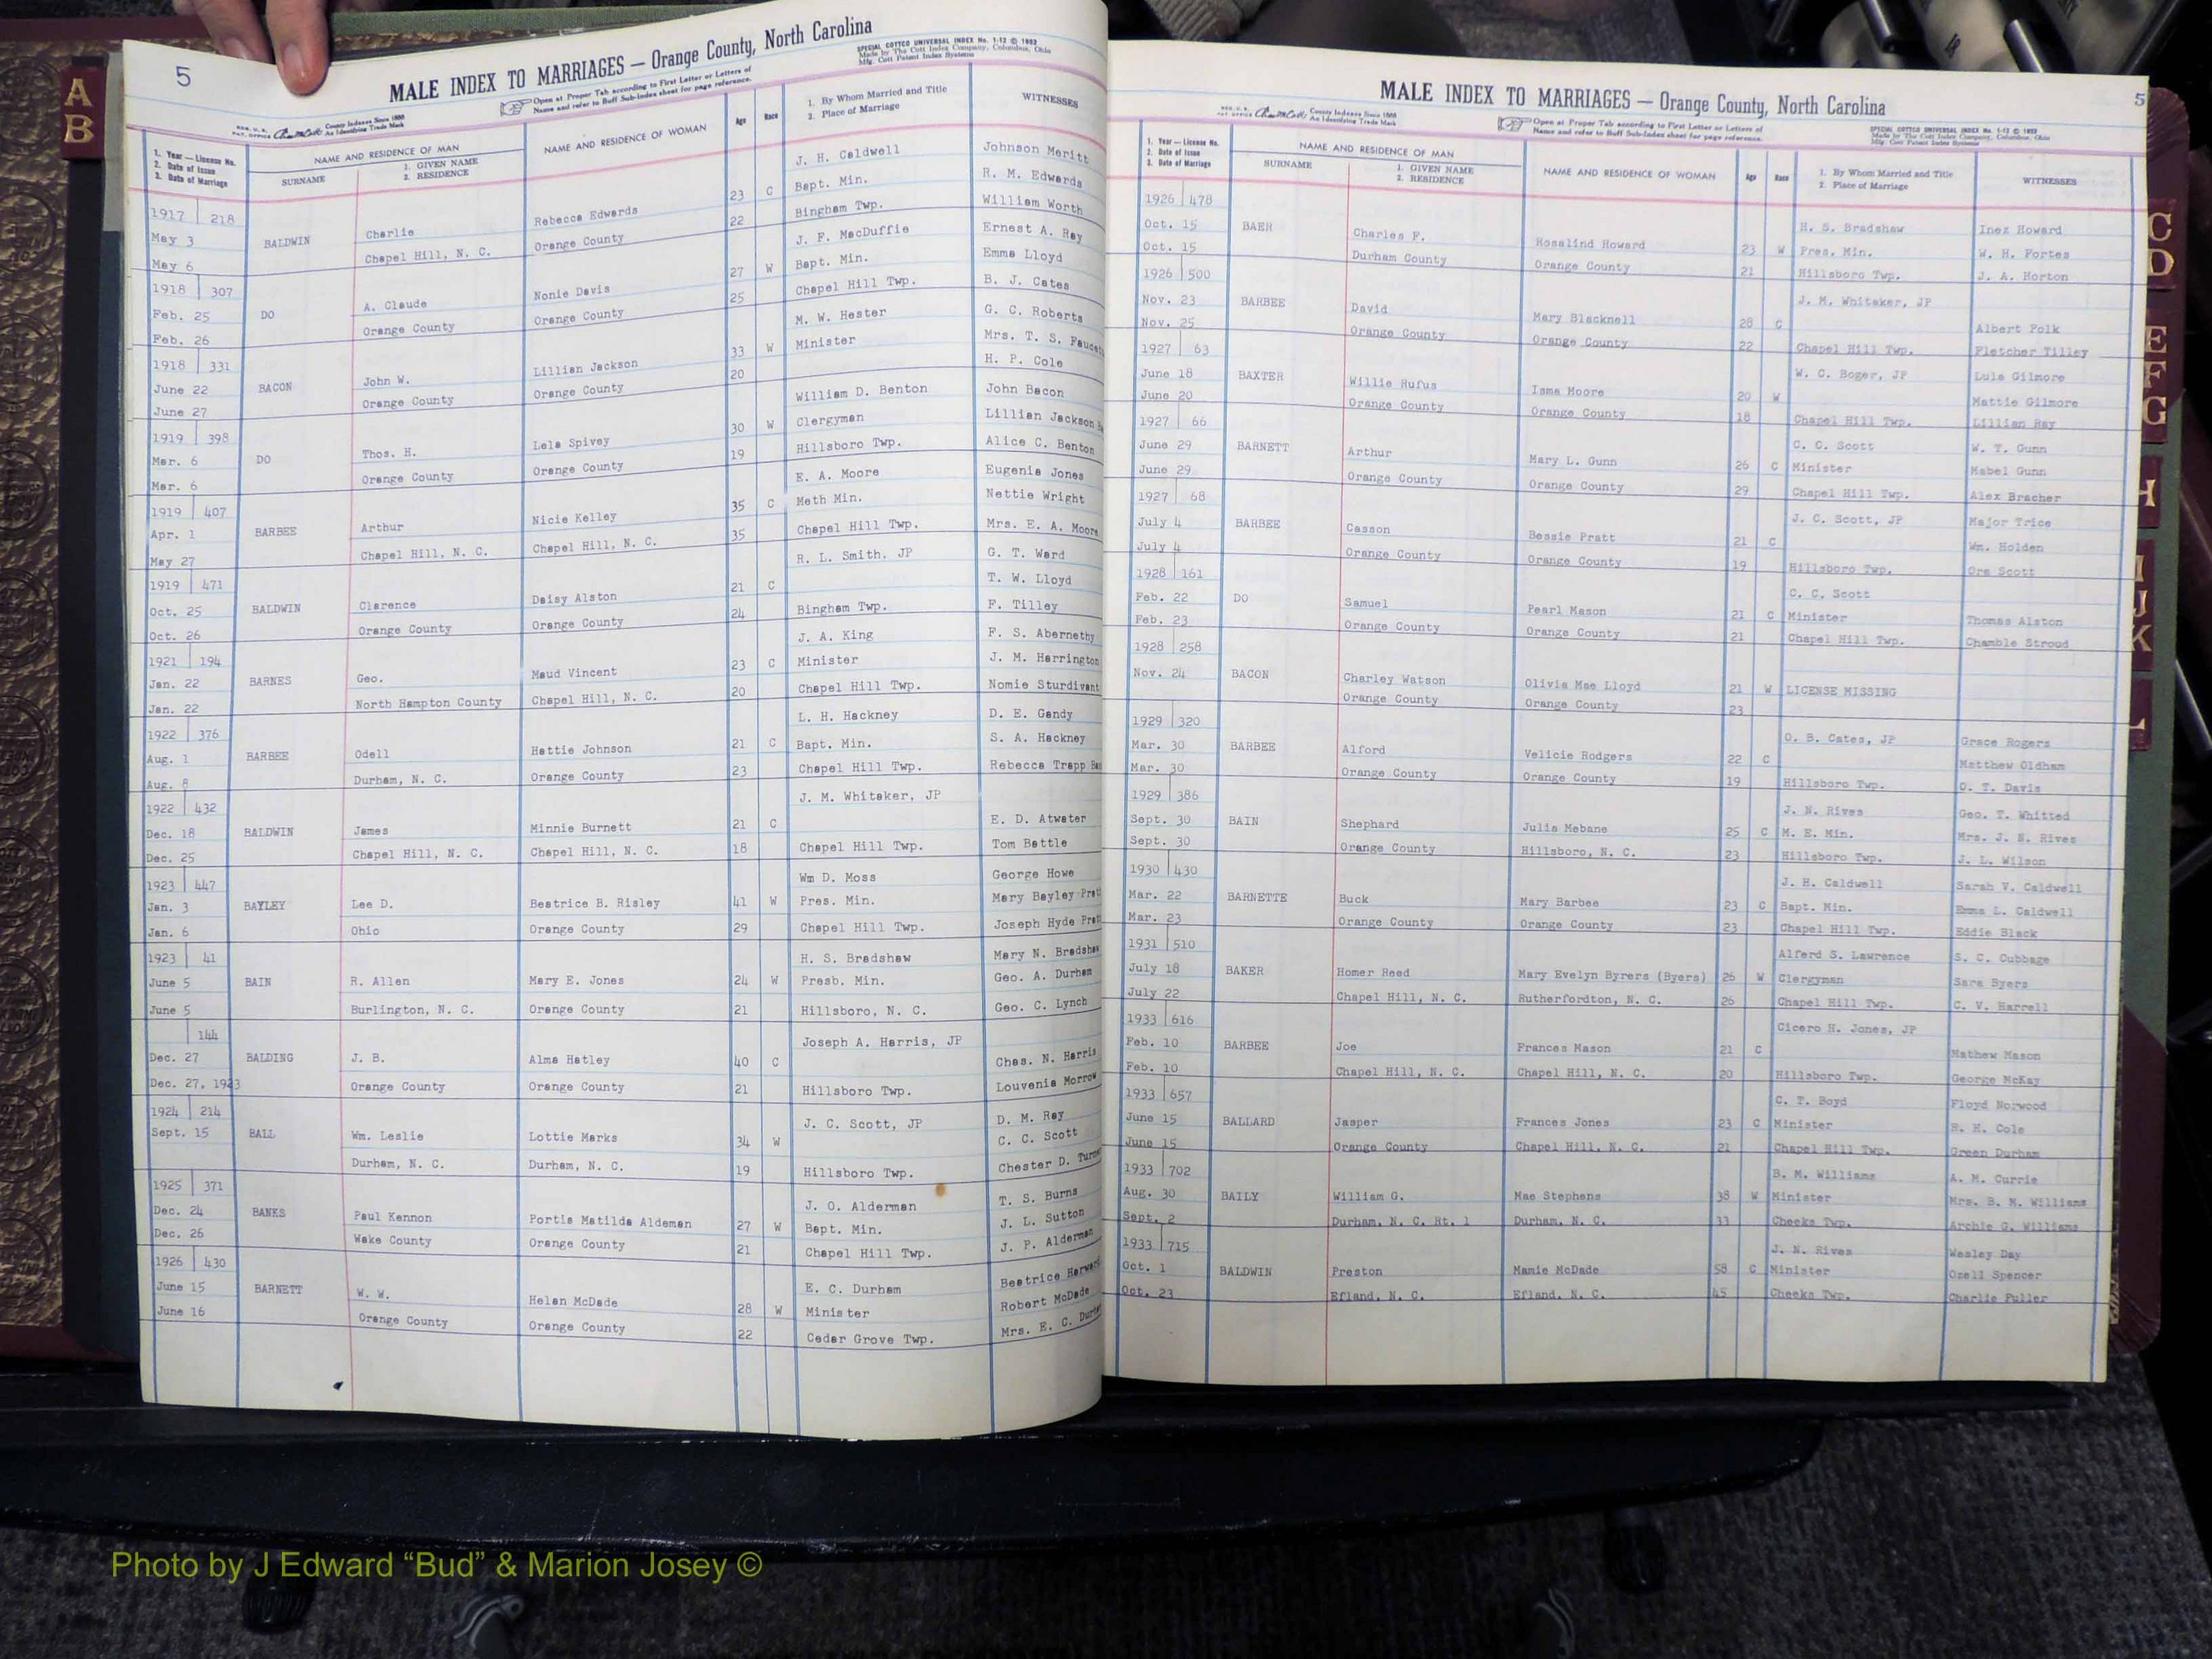 A
B
5
MALE INDEX TO MARRIAGES — Orange County, North Carolina
SPECIAL COTTCO UNIVERSAL INDEX No. 1-12 © 1952
Made by The Cott Index Company, Columbus, Ohio
Mfg. Cott Patent Index Systems
Open at Proper Tab according to First Letter or Letters of
Name and refer to Buff Sub-Index sheet for page reference.
County Indexes Since 1888
An Identifying Trade Mark
1. Year — License No.
2. Date of Issue
3. Date of Marriage
NAME AND RESIDENCE OF MAN
SURNAME
1. GIVEN NAME
2. RESIDENCE
NAME AND RESIDENCE OF WOMAN
Age
Race
1. By Whom Married and Title
2. Place of Marriage
WITNESSES
1917 218 J. H. Caldwell Johnson Meritt
May 3 BALDWIN Charlie Rebecca Edwards 23 C Bapt. Min. R. M. Edwards
May 6 Chapel Hill, N. C. Orange County 22 Bingham Twp. William Worth
1918 307 J. F. MacDuffie Ernest A. Ray
Feb. 25 DO A. Claude Nonie Davis 27 W Bapt. Min. Emma Lloyd
Feb. 26 Orange County Orange County 25 Chapel Hill Twp. B. J. Cates
1918 331 M. W. Hester G. C. Roberts
June 22 BACON John W. Lillian Jackson 33 W Minister Mrs. T. S.
June 27 Orange County Orange County 20 H. P. Cole
1919 398 William D. Benton John Bacon
Mar. 6 DO Thos. H. Lela Spivey 30 W Clergyman Lillian Jackson
Mar. 6 Orange County Orange County 19 Hillsboro Twp. Alice C. Benton
1919 407 E. A. Moore Eugenia Jones
Apr. 1 BARBEE Arthur Nicie Kelley 35 C Meth Min. Nettie Wright
May 27 Chapel Hill, N. C. Chapel Hill, N. C. 35 Chapel Hill Twp. Mrs. E. A. Moore
1919 471 R. L. Smith, JP G. T. Ward
Oct. 25 BALDWIN Clarence Daisy Alston 21 C T. W. Lloyd
Oct. 26 Orange County Orange County 24 Bingham Twp. F. Tilley
1921 194 J. A. King F. S. Abernethy
Jan. 22 BARNES Geo. Maud Vincent 23 C Minister J. M. Harrington
Jan. 22 North Hampton County Chapel Hill, N. C. 20 Chapel Hill Twp. Nomie Sturdivant
1922 376 L. H. Hackney D. E. Gandy
Aug. 1 BARBEE Odell Hattie Johnson 21 C Bapt. Min. S. A. Hackney
Aug. 8 Durham, N. C. Orange County 23 Chapel Hill Twp. Rebecca Trapp
1922 432 J. M. Whitaker, JP
Dec. 18 BALDWIN James Minnie Burnett 21 C E. D. Atwater
Dec. 25 Chapel Hill, N. C. Chapel Hill, N. C. 18 Chapel Hill Twp. Tom Battle
1923 447 Wm D. Moss George Howe
Jan. 3 BAYLEY Lee D. Beatrice B. Risley 41 W Pres. Min. Mary Bayley Prat
Jan. 6 Ohio Orange County 29 Chapel Hill Twp. Joseph Hyde Prat
1923 41 H. S. Bradshaw Mary N. Bradshaw
June 5 BAIN R. Allen Mary E. Jones 24 W Presb. Min. Geo. A. Durham
June 5 Burlington, N. C. Orange County 21 Hillsboro, N. C. Geo. C. Lynch
144 Joseph A. Harris, JP
Dec. 27 BALDING J. B. Alma Hatley 40 C Chas. N. Harris
Dec. 27, 1923 Orange County Orange County 21 Hillsboro Twp. Louvenia Morrow
1924 214 J. C. Scott, JP D. M. Ray
Sept. 15 BALL Wm. Leslie Lottie Marks 34 W C. C. Scott
Durham, N. C. Durham, N. C. 19 Hillsboro Twp. Chester D. Turne
1925 371 J. O. Alderman T. S. Burns
Dec. 24 BANKS Paul Kennon Portia Matilda Aldeman 27 W Bapt. Min. J. L. Sutton
Dec. 26 Wake County Orange County 21 Chapel Hill Twp. J. P. Alderman
1926 430 E. C. Durham Beatrice
June 15 BARNETT W. W. Helen McDade 28 W Minister Robert McDade
June 16 Orange County Orange County 22 Cedar Grove Twp. Mrs. E. C.
MALE INDEX TO MARRIAGES — Orange County, North Carolina
5
County Indexes Since 1888
An Identifying Trade Mark
Open at Proper Tab according to First Letter or Letters of
Name and refer to Buff Sub-Index sheet for page reference.
SPECIAL COTTCO UNIVERSAL INDEX No. 1-12 © 1952
Made by The Cott Index Company, Columbus, Ohio
Mfg. Cott Patent Index Systems
1. Year — License No.
2. Date of Issue
3. Date of Marriage
NAME AND RESIDENCE OF MAN
SURNAME
1. GIVEN NAME
2. RESIDENCE
NAME AND RESIDENCE OF WOMAN
Age
Race
1. By Whom Married and Title
2. Place of Marriage
WITNESSES
1926 478 H. S. Bradshaw Inez Howard
Oct. 15 BAER Charles F. Rosalind Howard 23 W Pres. Min. W. H. Fortes
Oct. 15 Durham County Orange County 21 Hillsboro Twp. J. A. Horton
1926 500 J. M. Whitaker, JP
Nov. 23 BARBEE David Mary Blacknell 28 C Albert Polk
Nov. 25 Orange County Orange County 22 Chapel Hill Twp. Fletcher Tilley
1927 63 W. C. Boger, JP Lula Gilmore
June 18 BAXTER Willie Rufus Isma Moore 20 W Mattie Gilmore
June 20 Orange County Orange County 18 Chapel Hill Twp. Lillian Ray
1927 66 C. C. Scott W. T. Gunn
June 29 BARNETT Arthur Mary L. Gunn 26 C Minister Mabel Gunn
June 29 Orange County Orange County 29 Chapel Hill Twp. Alex Bracher
1927 68 J. C. Scott, JP Major Trice
July 4 BARBEE Casson Bessie Pratt 21 C Wm. Holden
July 4 Orange County Orange County 19 Hillsboro Twp. Ora Scott
1928 161 C. C. Scott
Feb. 22 DO Samuel Pearl Mason 21 C Minister Thomas Alston
Feb. 23 Orange County Orange County 21 Chapel Hill Twp. Chamble Stroud
1928 258
Nov. 24 BACON Charley Watson Olivia Mae Lloyd 21 W LICENSE MISSING
Orange County Orange County 23
1929 320 O. B. Cates, JP Grace Rogers
Mar. 30 BARBEE Alford Velicie Rodgers 22 C Matthew Oldham
Mar. 30 Orange County Orange County 19 Hillsboro Twp. O. T. Davis
1929 386 J. N. Rives Geo. T. Whitted
Sept. 30 BAIN Shephard Julia Mebane 25 C M. E. Min. Mrs. J. N. Rives
Sept. 30 Orange County Hillsboro, N. C. 23 Hillsboro Twp. J. L. Wilson
1930 430 J. H. Caldwell Sarah V. Caldwell
Mar. 22 BARNETTE Buck Mary Barbee 23 C Bapt. Min. Emma L. Caldwell
Mar. 23 Orange County Orange County 23 Chapel Hill Twp. Eddie Black
1931 510 Alferd S. Lawrence S. C. Cubbage
July 18 BAKER Homer Reed Mary Evelyn Byrers (Byers) 26 W Clergyman Sara Byers
July 22 Chapel Hill, N. C. Rutherfordton, N. C. 26 Chapel Hill Twp. C. V. Harrell
1933 616 Cicero H. Jones, JP
Feb. 10 BARBEE Joe Frances Mason 21 C Mathew Mason
Feb. 10 Chapel Hill, N. C. Chapel Hill, N. C. 20 Hillsboro Twp. George McKay
1933 657 C. T. Boyd Floyd Norwood
June 15 BALLARD Jasper Frances Jones 23 C Minister R. H. Cole
June 15 Orange County Chapel Hill, N. C. 21 Chapel Hill Twp. Green Durham
1933 702 B. M. Williams A. M. Currie
Aug. 30 BAILY William G. Mae Stephens 38 W Minister Mrs. B. M. Williams
Sept. 2 Durham, N. C. Rt. 1 Durham, N. C. 33 Cheeks Twp. Archie G. Williams
1933 715 J. N. Rives Wesley Day
Oct. 1 BALDWIN Preston Mamie McDade 58 C Minister Ozell Spencer
Oct. 23 Efland, N. C. Efland, N. C. 45 Cheeks Twp. Charlie Fuller
C
D
E
F
G
H
I
J
K
L
Photo by J Edward “Bud” & Marion Josey ©